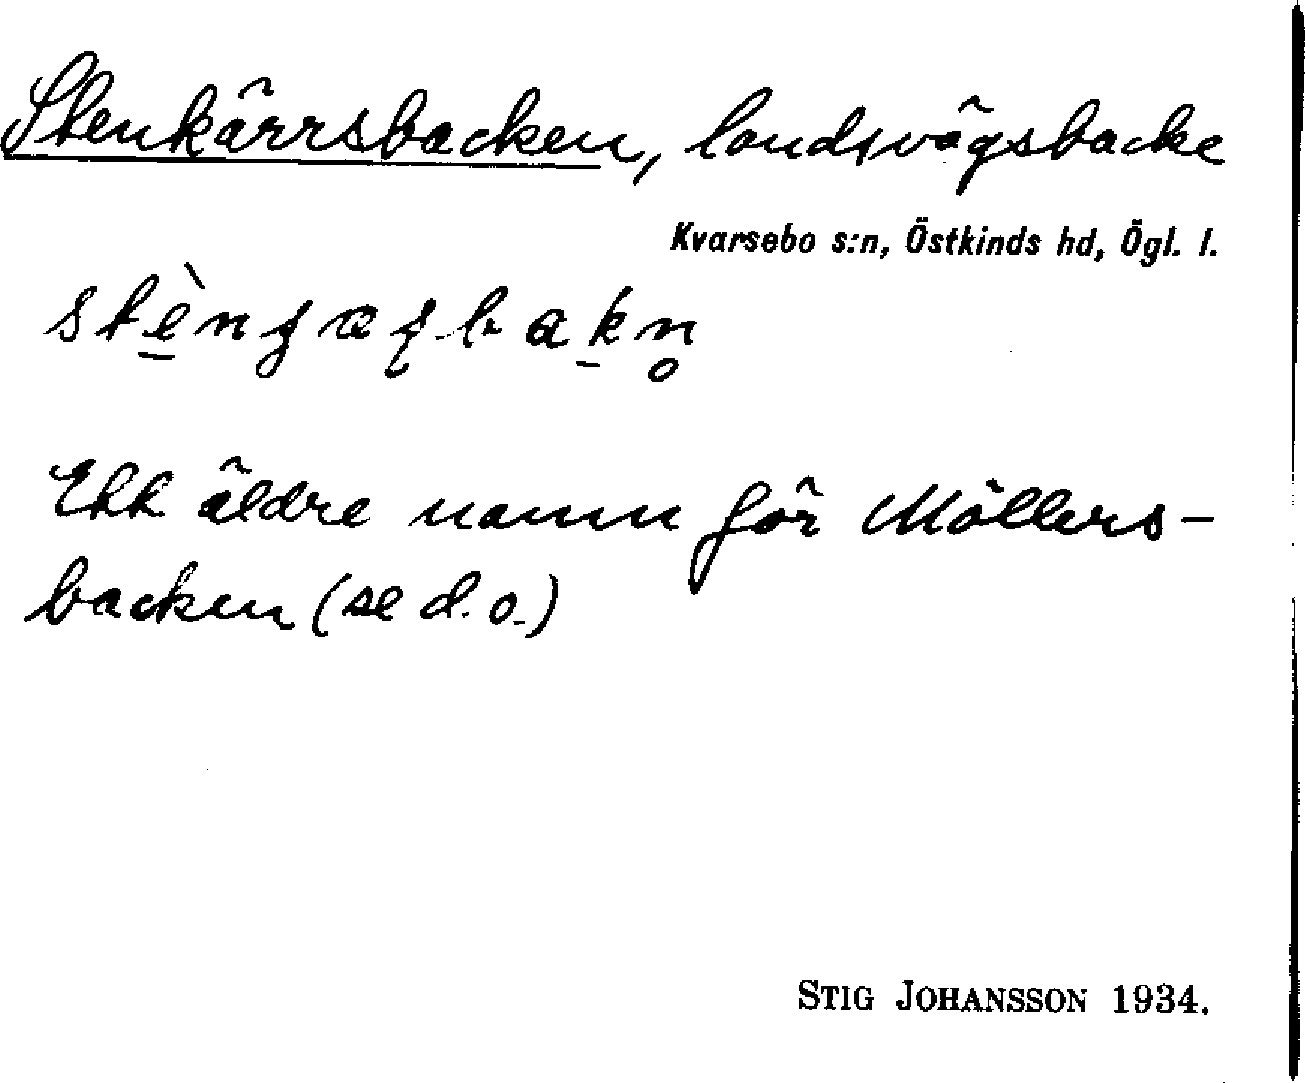 Stenkärrsbacken, landsvägsbacke
Kvarsebo s:n, Östkinds hd, Ögl. l.
Ett äldre namn för Möllers-
backen (se d.o.)
STIG JOHANSSON 1934.